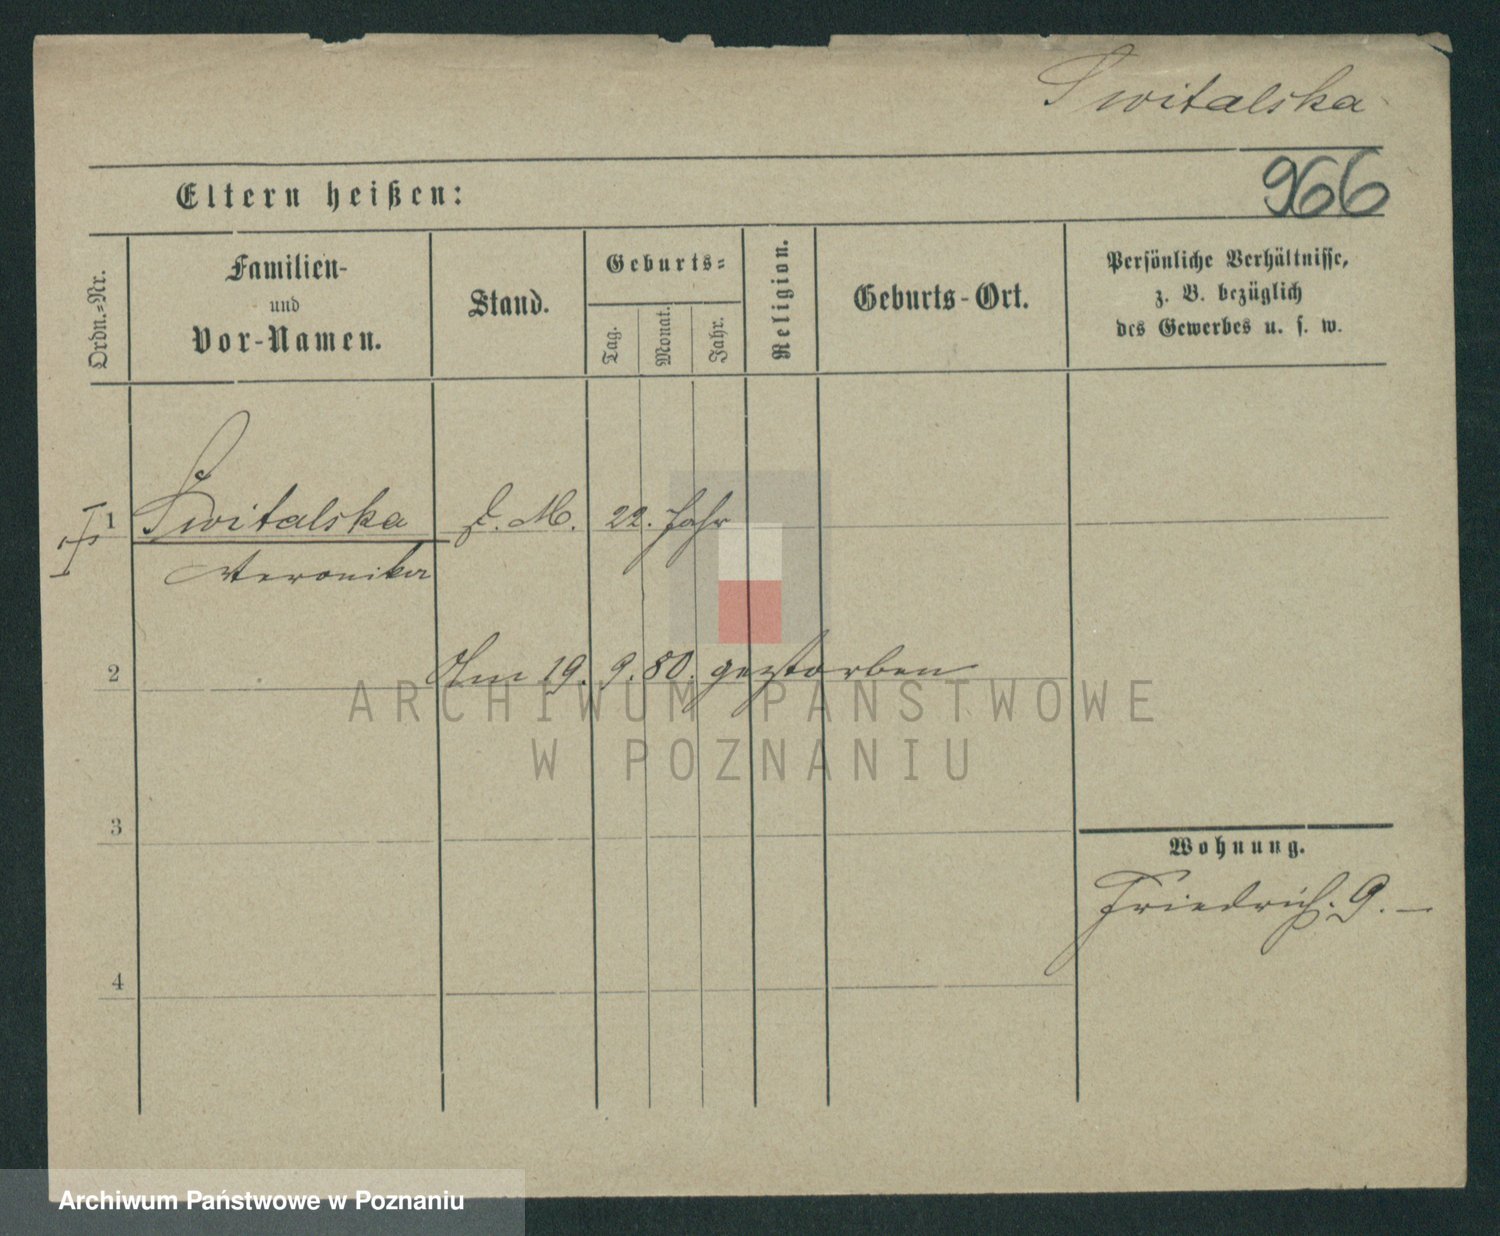 Switalska
966
Eltern heißen:
Ordn.-Nr.
Familien-
und
Vor-Namen.
Stand.
Geburts-
Tag.
Monat.
Jahr.
Religion.
Geburts-Ort.
Persönliche Verhältnisse,
z. B. bezüglich
des Gewerbes u. s. w.
1 Switalska D. M. 22. Jahr
Veronika
2 Am 19. 9. 80. gestorben
ARCHIWUM PAŃSTWOWE
W POZNANIU
3
Wohnung.
Friedrich. 9. —
4
Archiwum Państwowe w Poznaniu